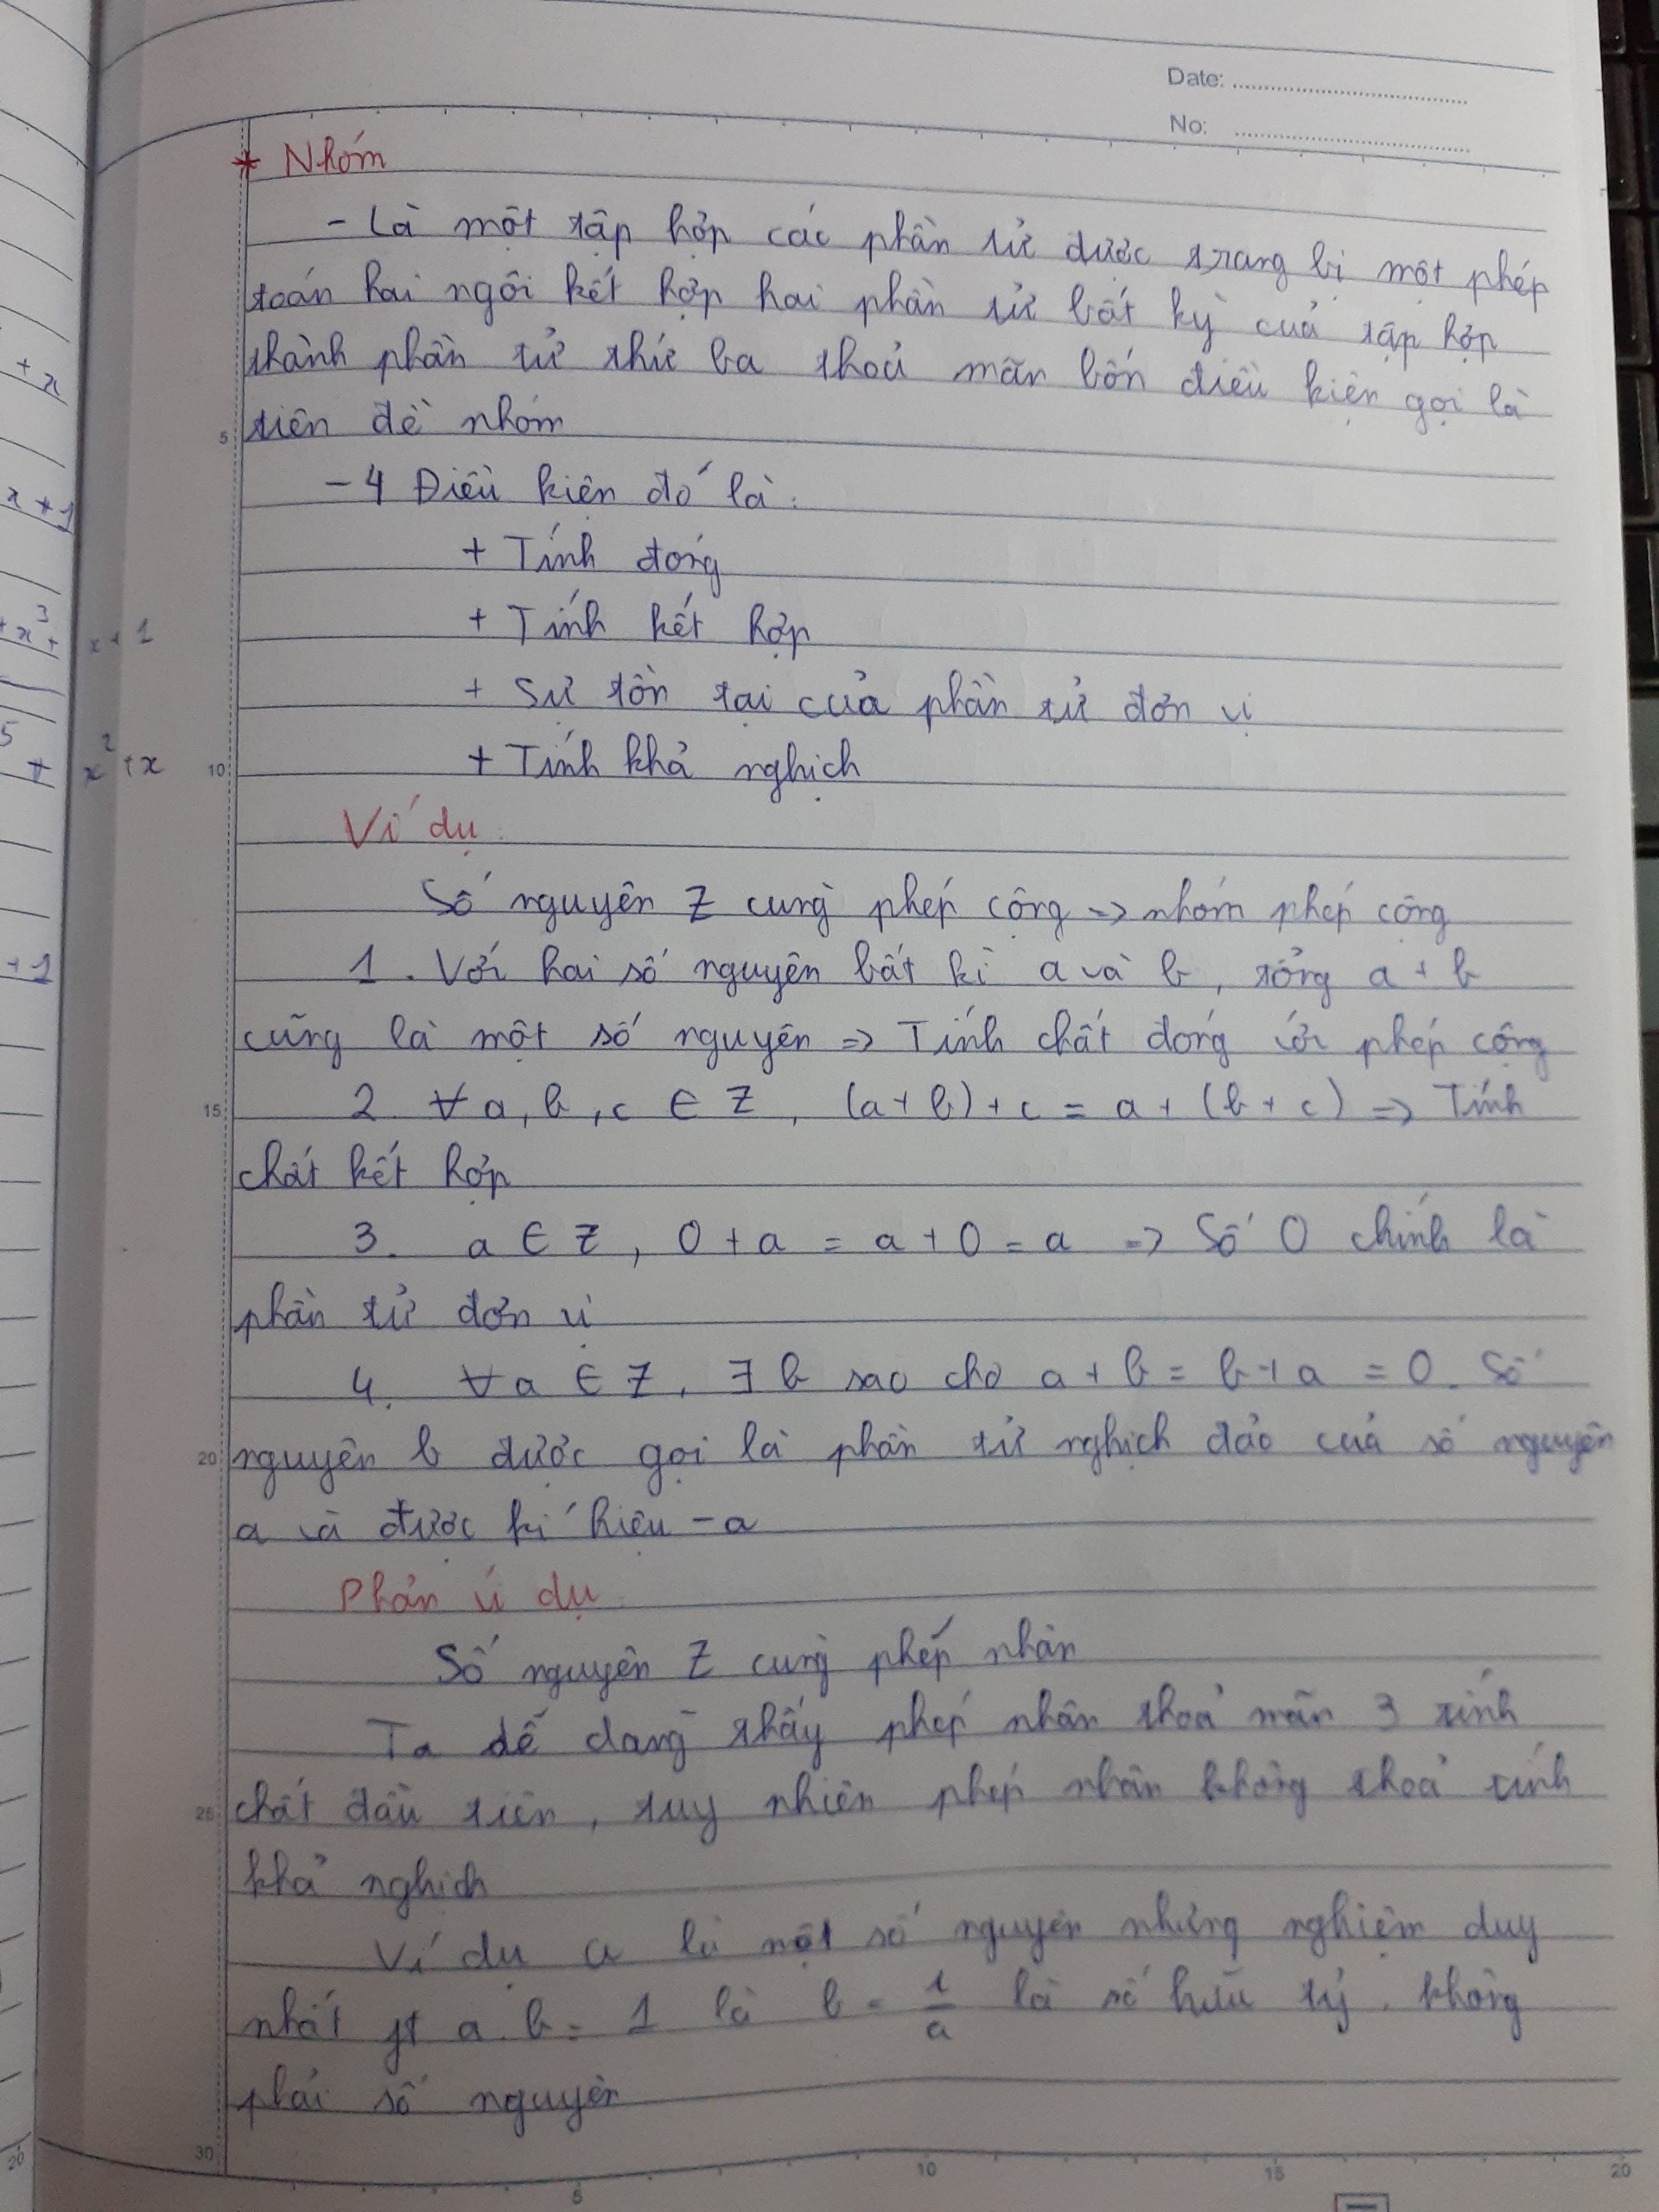 Date:
No:
* Nhóm
- Là một tập hợp các phần tử được trang bị một phép
toán hai ngôi kết hợp hai phần tử bất kỳ của tập hợp
thành phần tử thứ ba thoả mãn bốn điều kiện gọi là
5 tiên đề nhóm
- 4 Điều kiện đó là:
+ Tính đóng
+ Tính kết hợp
+ Sự tồn tại của phần tử đơn vị
10 + Tính khả nghịch
Ví dụ:
Số nguyên Z cùng phép cộng => nhóm phép cộng
1. Với hai số nguyên bất kì a và b, tổng a + b
cũng là một số nguyên => Tính chất đóng với phép cộng
15 2. ∀ a, b, c ∈ Z, (a + b) + c = a + (b + c) => Tính
chất kết hợp
3. a ∈ Z, 0 + a = a + 0 = a => Số 0 chính là
phần tử đơn vị
4. ∀ a ∈ Z, ∃ b sao cho a + b = b + a = 0. Số
20 nguyên b được gọi là phần tử nghịch đảo của số nguyên
a và được kí hiệu -a
Phản ví dụ:
Số nguyên Z cùng phép nhân
Ta dễ dàng thấy phép nhân thoả mãn 3 tính
25 chất đầu tiên, tuy nhiên phép nhân không thoả tính
khả nghịch
Ví dụ a là một số nguyên nhưng nghiệm duy
nhất pt a.b = 1 là b = 1/a là số hữu tỷ, không
phải số nguyên
30
5 10 15 20
+ x
x + 1
+ x³ + x + 1
5 + x² + x
+ 1
20